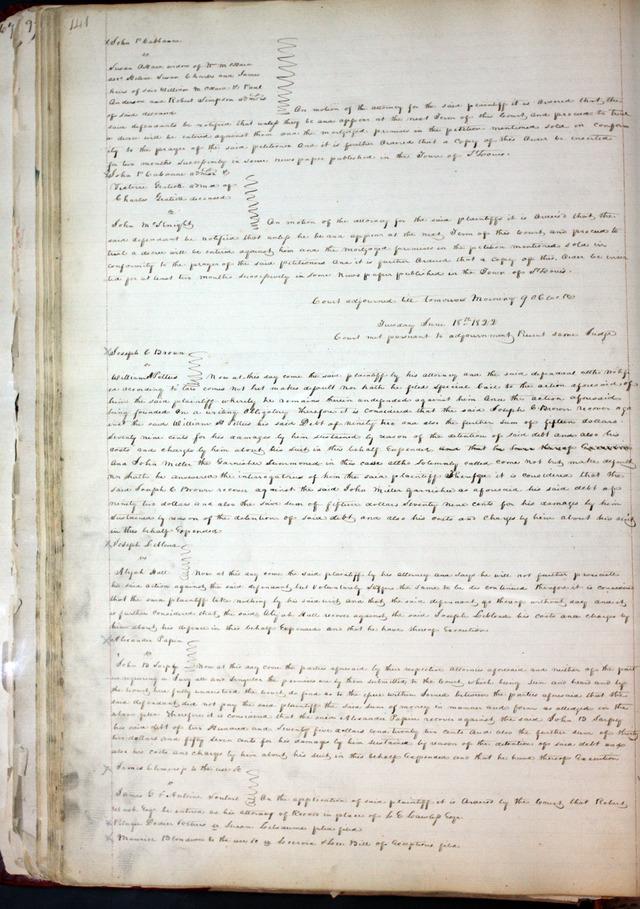 141
John P Cabbanne
vs
Susan widow of Wm McHara
Susan Charles and James
heirs of said William McHara & Paul
Anderson and Robert Simpson
of said deceased
On motion of the attorney for the said plaintiff it is Ordered that the
said defendants be notified that unless they be and appear at the next Term of this Court, and proceed to trial
a decree will be entered against them and the mortgaged premises in the petition mentioned sold in conform
ity to the prayer of the said petitioner And it is further Ordered that a Copy of this Order be inserted
for two months successively in some newspaper published in the Town of St Louis.
John P Cabanne &
Victorie Gratiott admx of
Charles Gratiott deceased
vs
John McKnight
On motion of the attorney for the said plaintiffs it is Ordered that, the
said defendant be notified that unless he be and appear at the next Term of this Court, and proceed to
trial a decree will be entered against him and the Mortgaged premises in the petition mentioned sold in
conformity to the prayer of the said petitioners And it is further Ordered that a copy of this Order be inser
ted for at least two months successively in some Newspaper published in the Town of St Louis.
Court adjourned till tomorrow Morning 9 OClock
Tuesday June 18th 1822
Court met pursuant to adjournment, Present same Judge
Joseph C Brown
vs
William Now at this day come the said plaintiff by his attorney and the said defendant altho Notifi
ed according to law comes not but makes default nor hath he filed Special bail to the action aforesaid of
him the said plaintiff whereby he remains therein undefended against him And the action aforesaid
being founded on a writing Obligatory Therefore it is considered that the said Joseph C Brown recover aga
inst the said William his said Debt of ninety two and also the further sum of fifteen dollars
Seventy nine cents for his damages by him sustained by reason of the detention of said debt and also his
costs and charges by him about his suit in this behalf Expended
And John Miller the Garnishee Summoned in this case altho Solemnly called come not but make default
nor hath he answered the interrogatories of him the said plaintiff Therefore it is considered that the
said Joseph C Brown recover against the said John Miller garnishee as aforesaid his said debt of
ninety two dollars and also the said sum of fifteen dollars Seventy Nine cents for his damages by him
Sustained by reason of the detention of said debt, and also his costs and Charges by him about his suit
in this behalf Expended
Joseph Leblond
vs
Elijah Hall Now at this day come the said plaintiff by his Attorney and Says he will not further prosecute
his said action against the said defendant but Voluntarily Suffers the same to be discontinued Therefore it is considered
that the said plaintiff take nothing by his said writ and that the said defendant go thereof without day and it
is further considered that the said Elijah Hall recover against the said Joseph Leblond his costs and charges by
him about his defence in this behalf Expended and that he have thereof Execution
Alexander Papin
vs
John B Sarpy Now at this day come the parties aforesaid by their respective Attornies aforesaid and neither of the parties
requiring a Jury all and Singular the premises are by them submitted to the Court, which being seen and heard and by
the Court, here fully understood the Court, do find as to the issue within Joined between the parties aforesaid that the
said defendant did not pay the said plaintiff the said Sum of money in manner and form as alledged in the
above plea Therefore it is considered that the said Alexander Papin recover against the said John B Sarpy
his said debt of two Hundred and Seventy five dollars and twenty two cents And also the further sum of thirty
two dollars and fifty Seven cents for his damages by him sustained by reason of the detention of said debt and
also his costs and charges by him about his suit, in this behalf Expended and that he have thereof Execution
James Clemens jr to the use &c
vs
James C & Antoine Soulard On the application of said plaintiff it is Ordered by the Court, that Robert
Wash Esqr be entered as his attorney of Record in place of L E Lawless Esqr.
Pelagie Dodier vs Susan plea filed
Maurice Blondeau to the use &c vs Bill of Exceptions filed